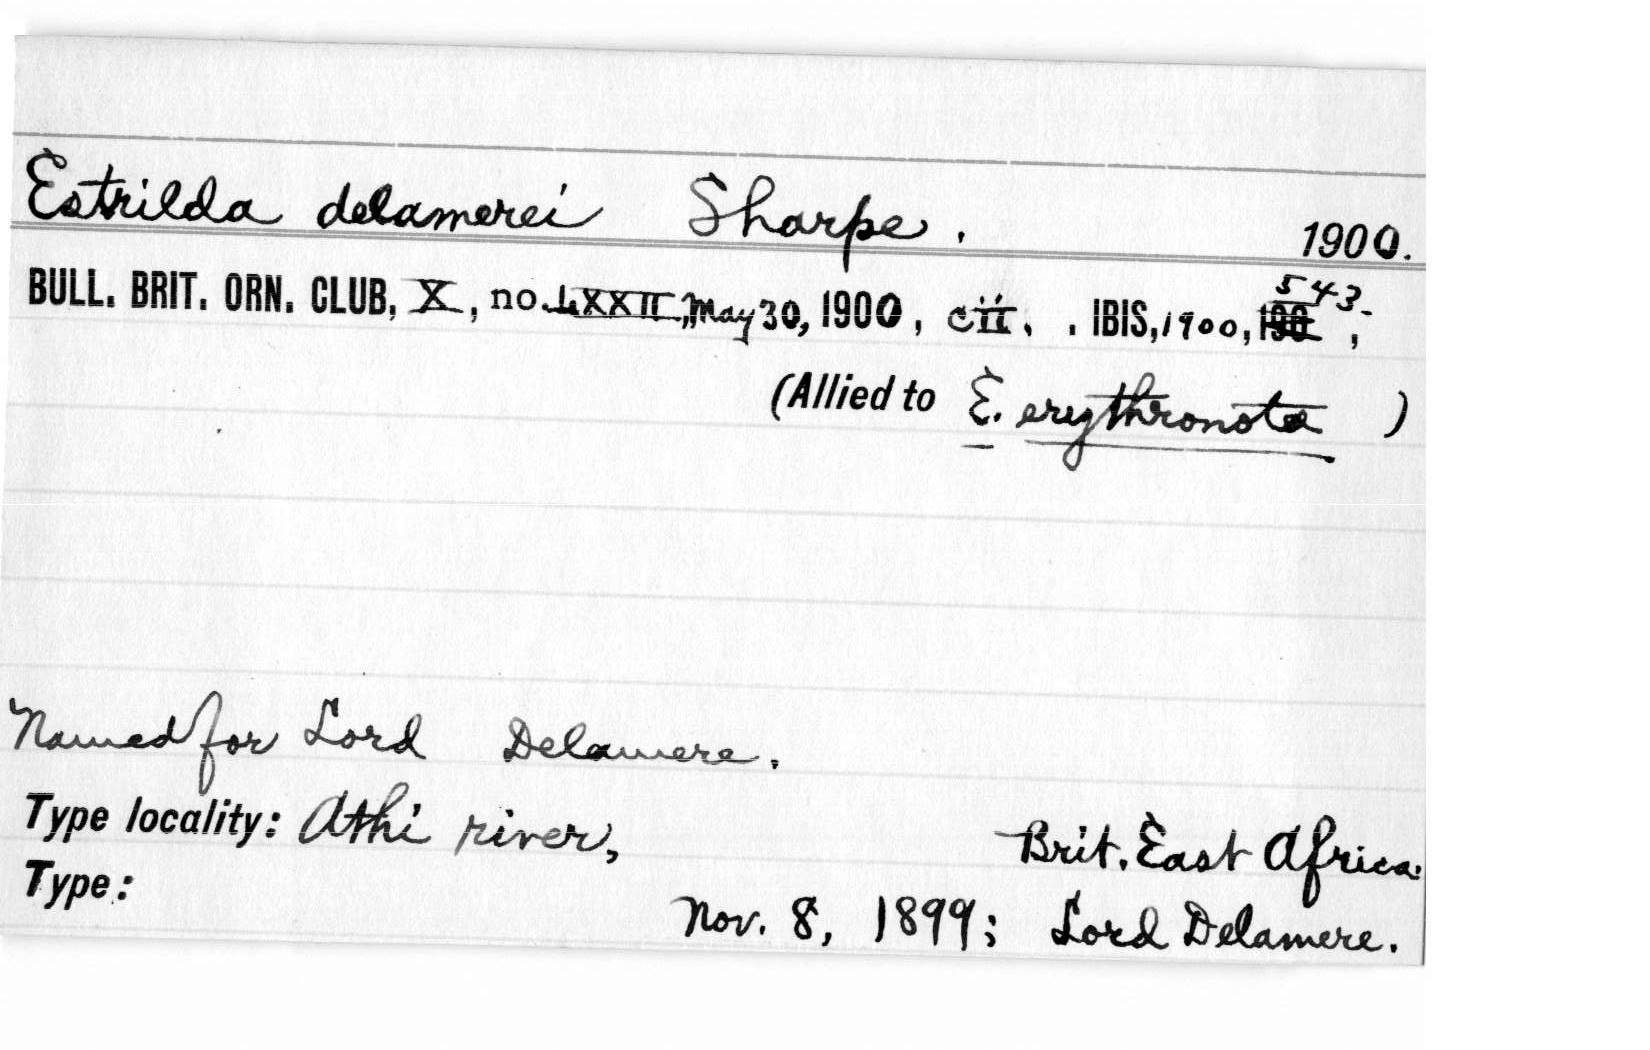 Estrilda delamerei Sharpe. 1900.
BULL. BRIT. ORN. CLUB, X, no. LXXII, May 30, 1900, cii. . IBIS, 1900, 543;
(Allied to E. erythronota )
Named for Lord Delamere.
Type locality: Athi river, Brit. East Africa.
Type:
Nov. 8, 1899; Lord Delamere.